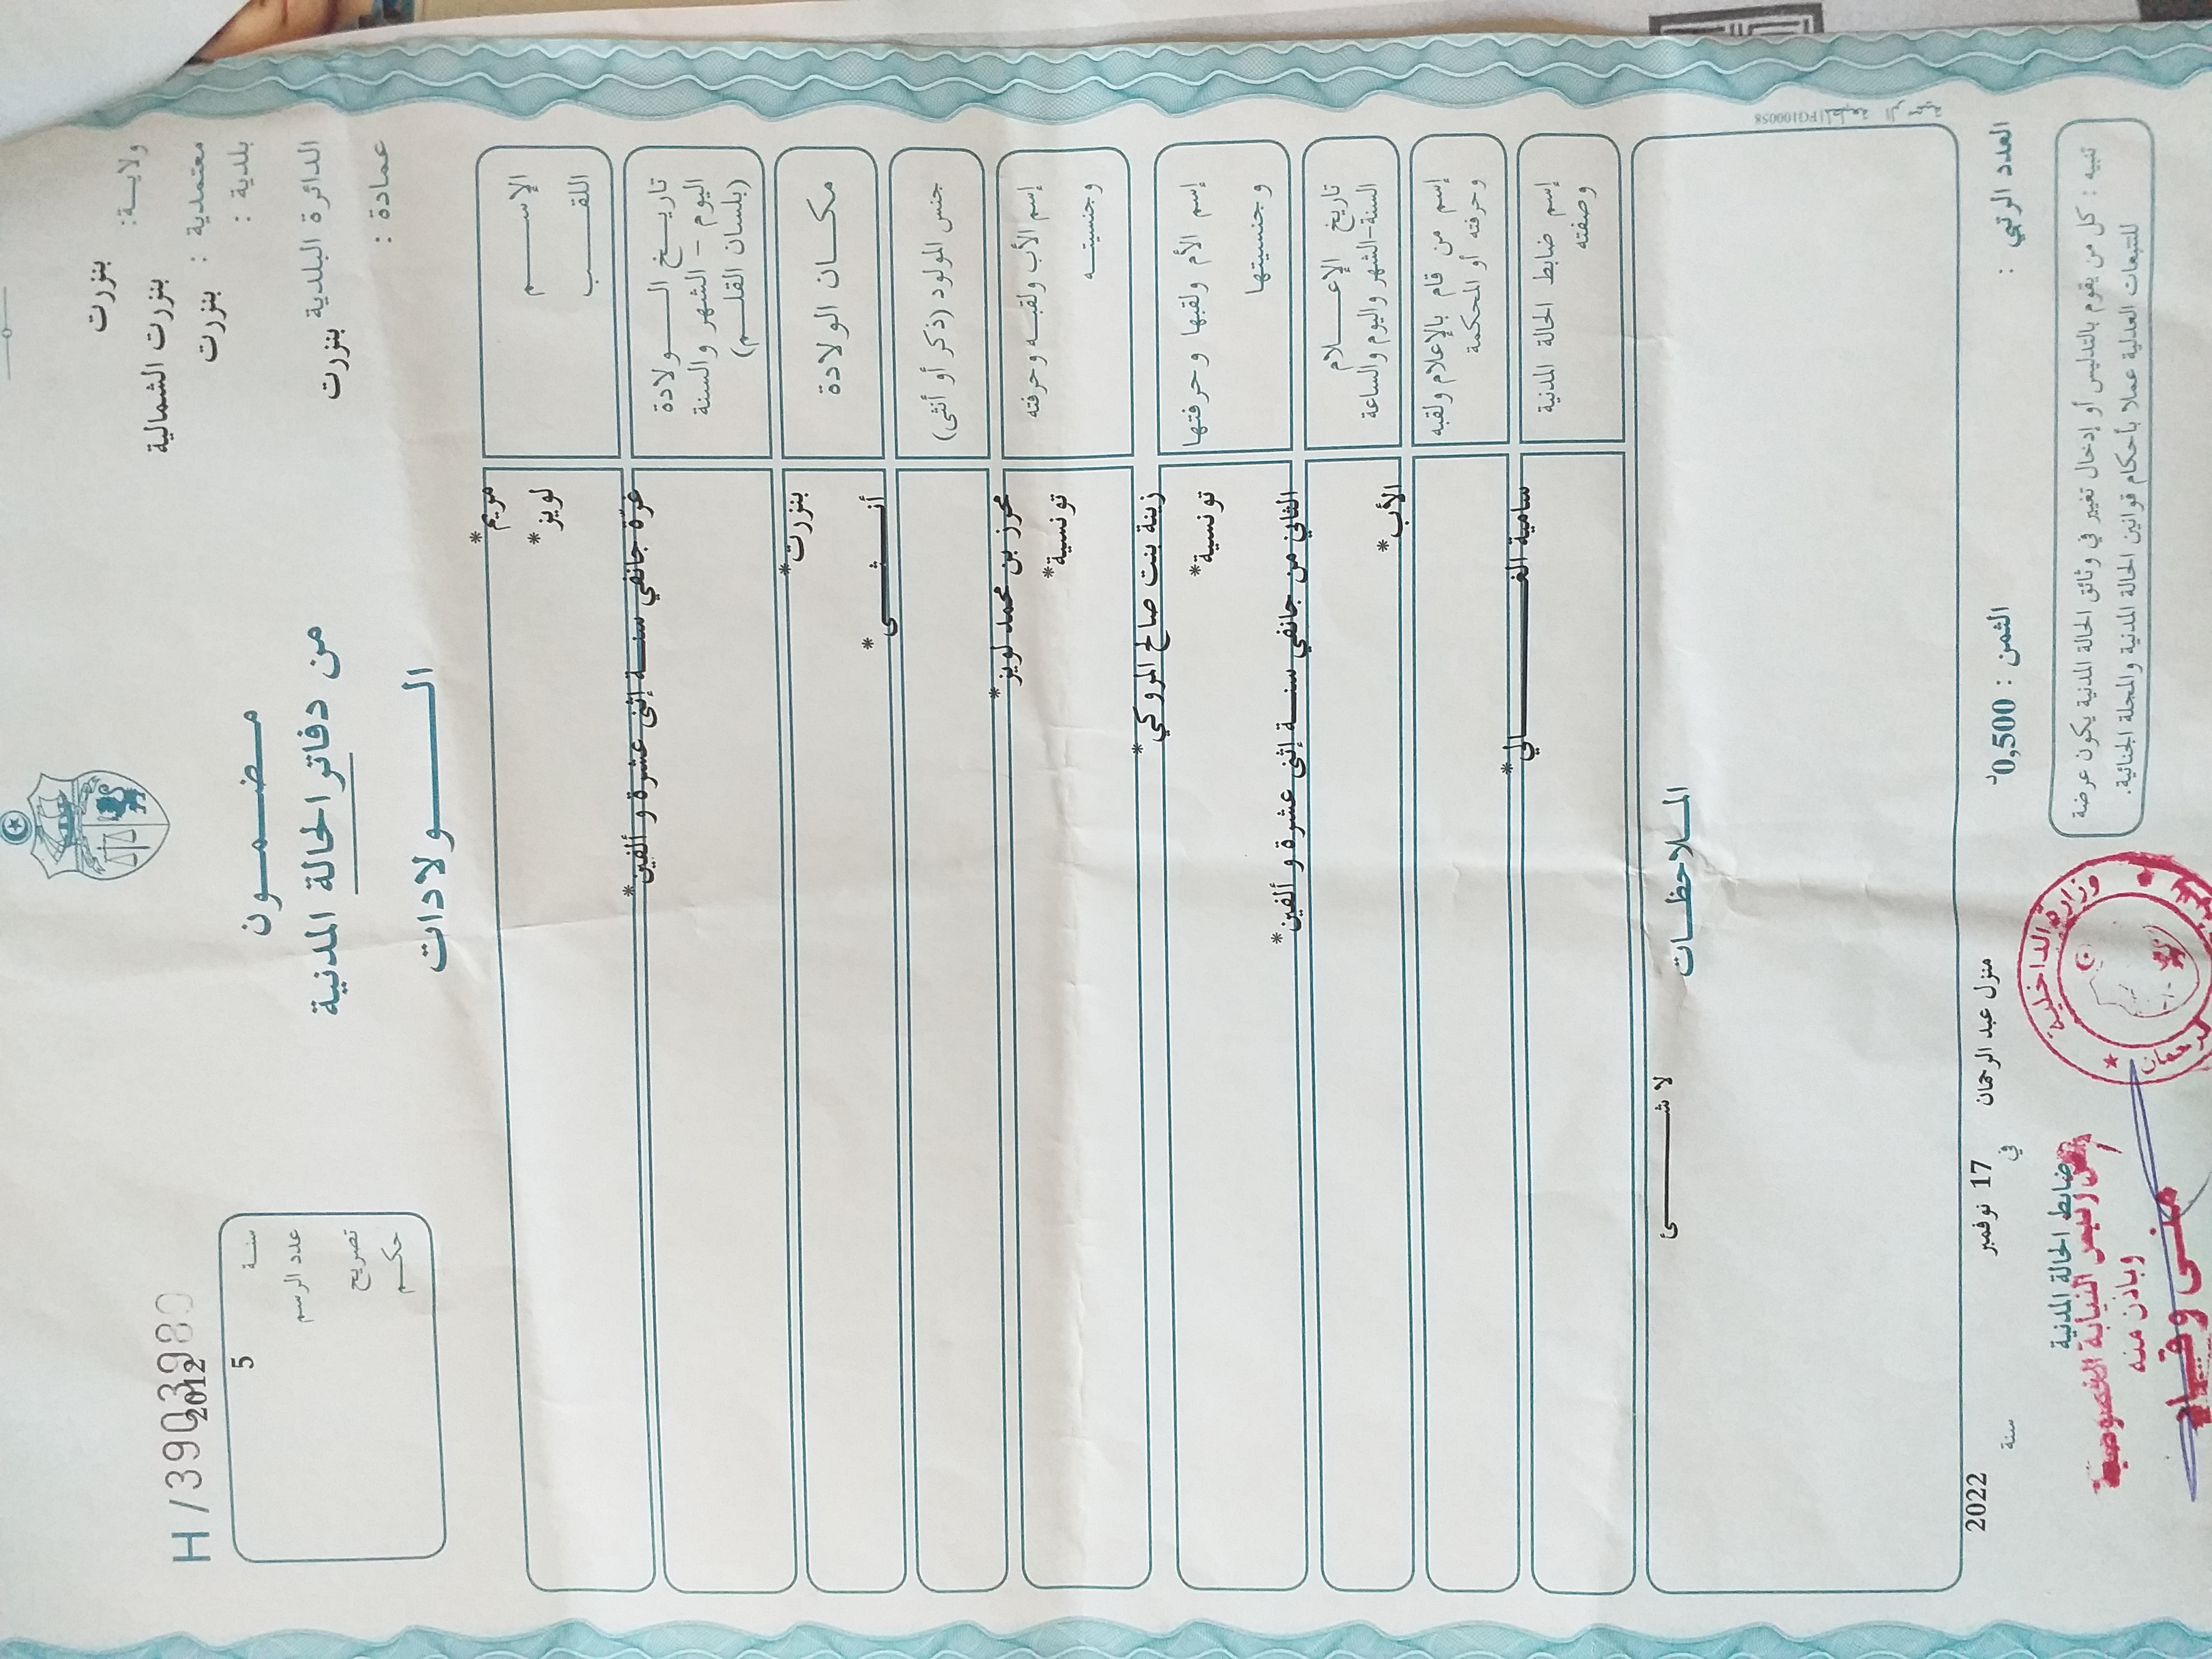 ولاية: بنزرت
معتمدية : بنزرت الشمالية
بلدية : بنزرت
الدائرة البلدية بنزرت
عمادة :
مضمون
من دفاتر الحالة المدنية
الولادات
H/390398
2012
سنة 5
عدد الرسم
تصريح
حكم
الإسم مريم*
اللقب لويز*
تاريخ الولادة
اليوم - الشهر والسنة
(بلسان القلم)
غرّة جانفي سنة إثنى عشرة و ألفين*
مكان الولادة بنزرت*
جنس المولود (ذكر أو أنثى) أنثى*
إسم الأب ولقبه وحرفته محرز بن محمد لويز*
وجنسيته تونسية*
إسم الأم ولقبها وحرفتها زينة بنت صالح المروكي*
وجنسيتها تونسية*
تاريخ الإعلام
السنة-الشهر واليوم والساعة
الثاني من جانفي سنة إثنى عشرة و ألفين*
إسم من قام بالإعلام ولقبه
وحرفته أو المحكمة
الأب*
إسم ضابط الحالة المدنية
وصفته
سامية الغالي*
الملاحظات
لا شئ
PG100058
العدد الرتبي :
الثمن : 0,500د
منزل عبد الرحمان في 17 نوفمبر سنة 2022
تنبيه : كل من يقوم بالتدليس أو إدخال تغيير في وثائق الحالة المدنية يكون عرضة
للتتبعات العدلية عملا بأحكام قوانين الحالة المدنية والمجلة الجنائية.
ضابط الحالة المدنية
رئيس النيابة الخصوصية
وبإذن منه
وزارة الداخلية